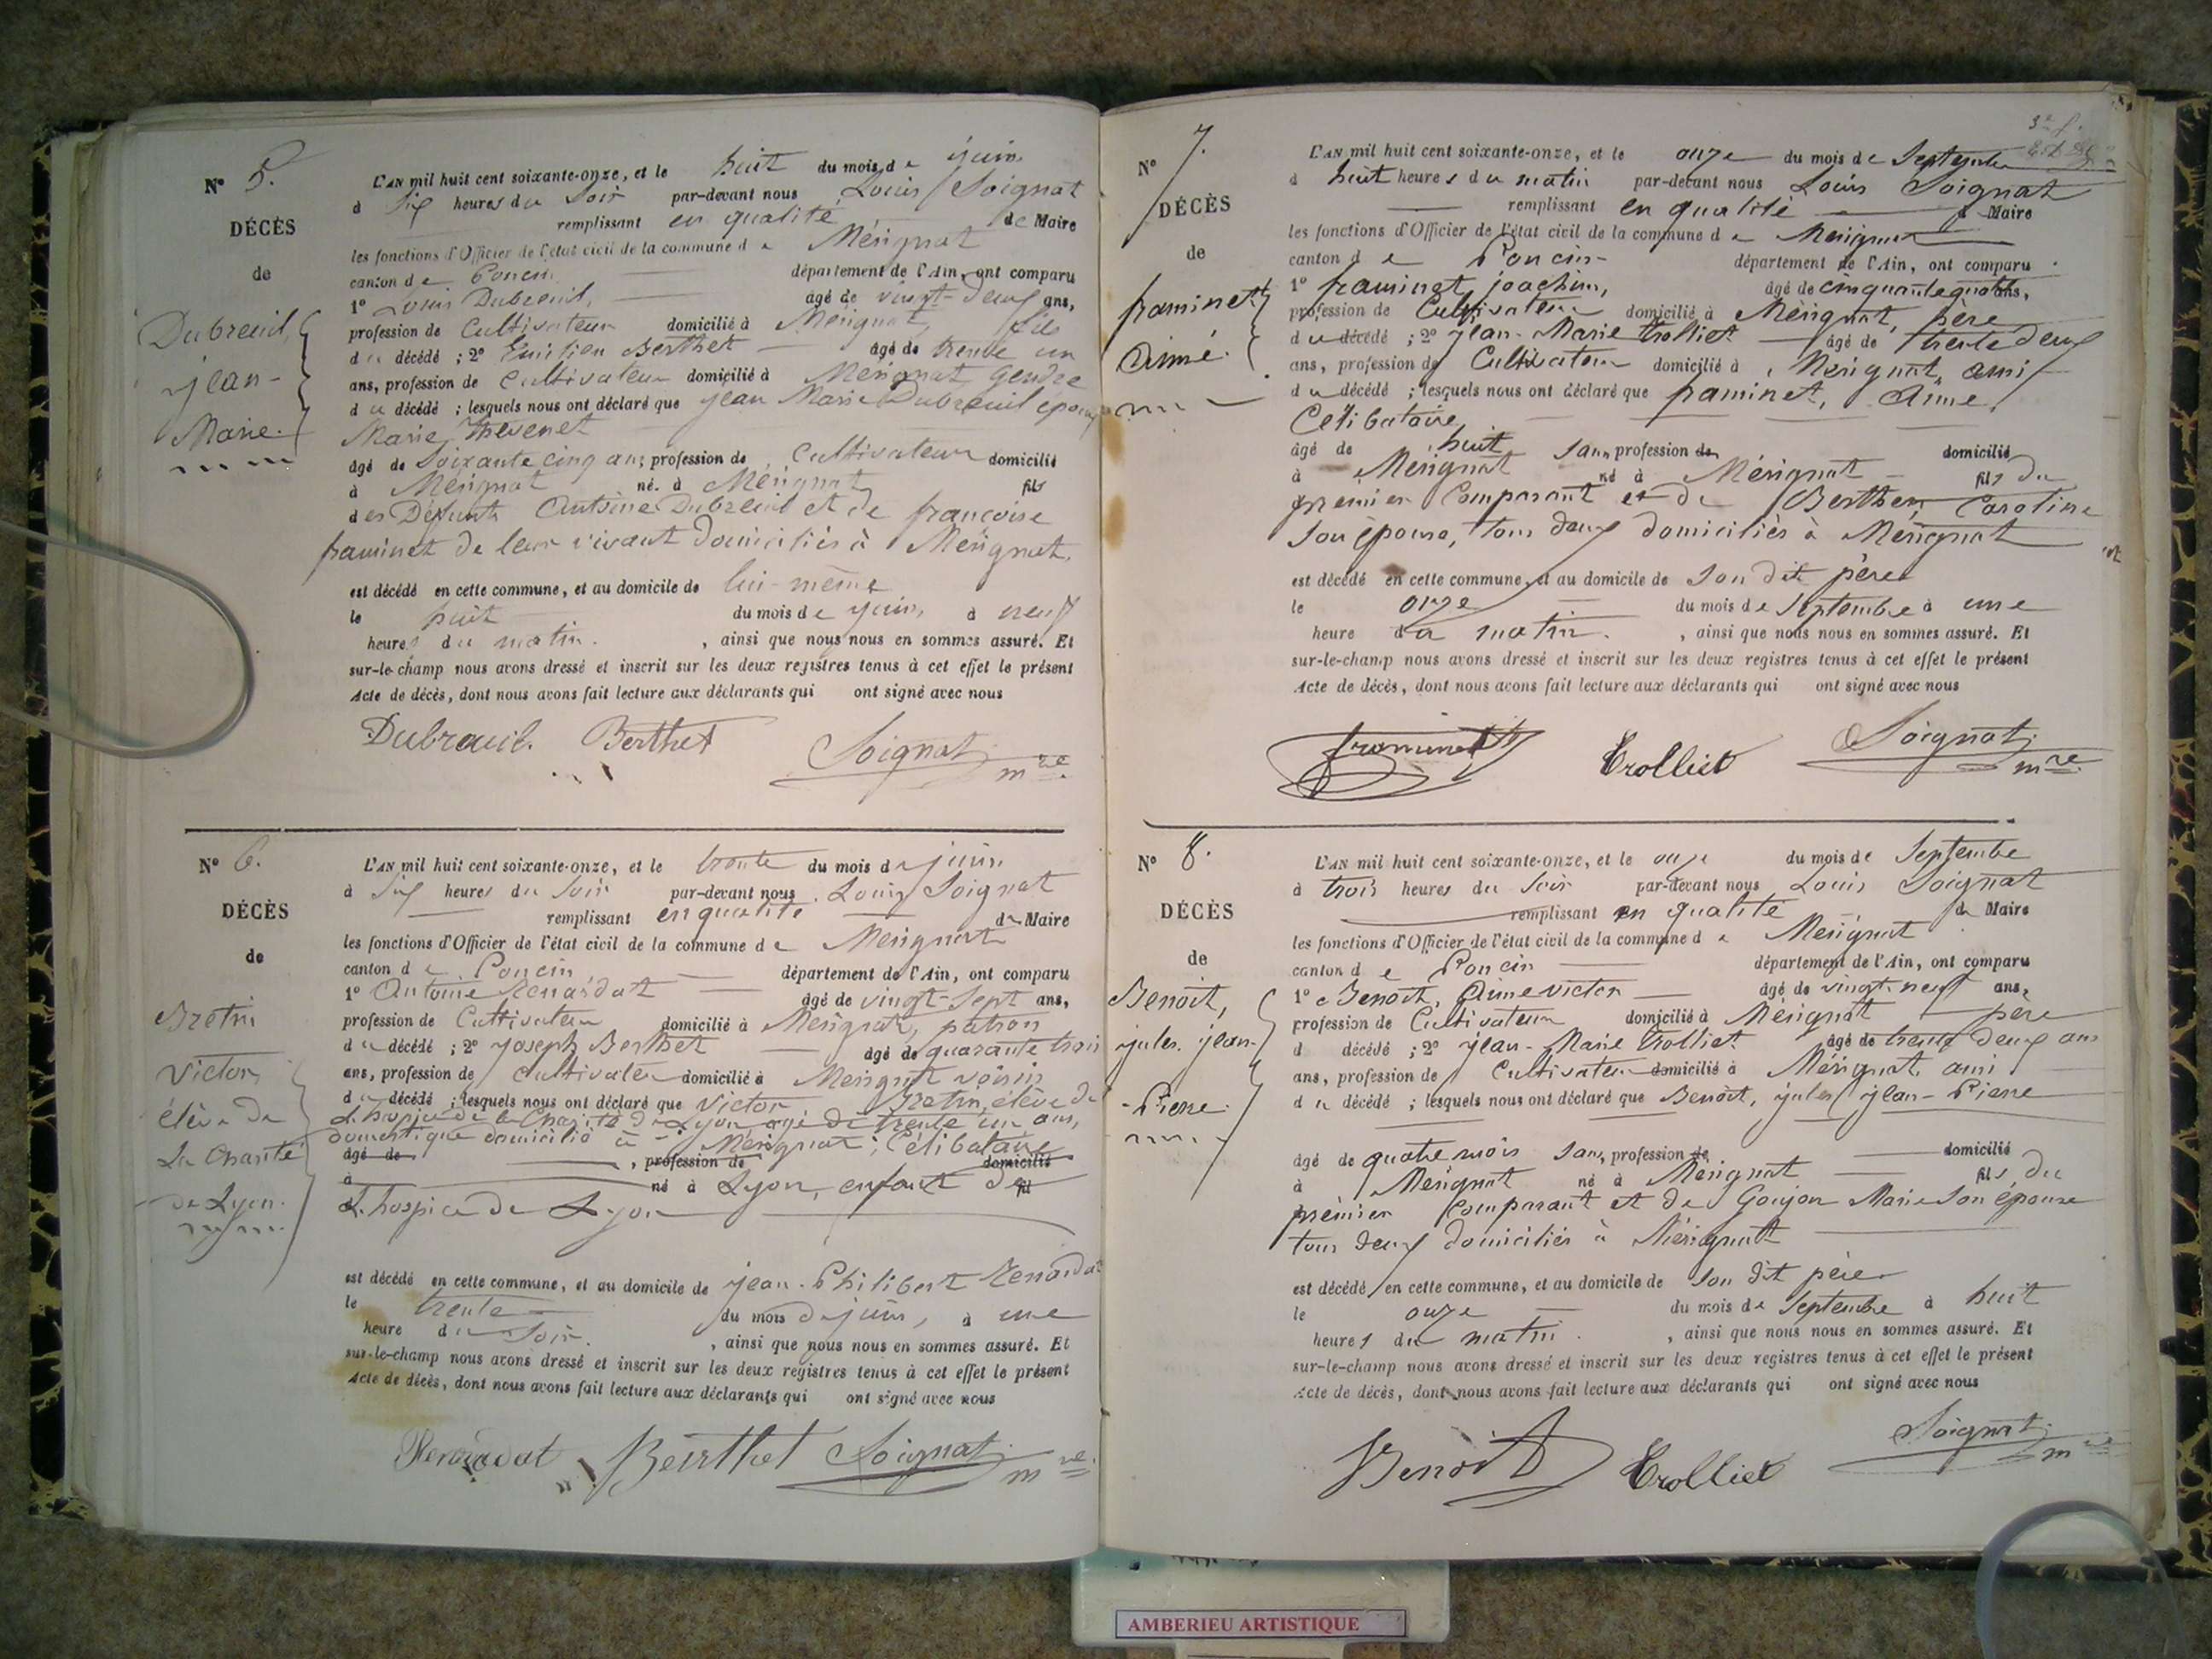 N° 5.
DÉCÈS
de
Dubreuil,
jean-
Marie.
L'AN mil huit cent soixante-onze, et le huit du mois de juin
à six heures du soir par-devant nous Louis Soignat
remplissant en qualité de Maire
les fonctions d'Officier de l'état civil de la commune de Mérignat
canton de Poncin département de l'Ain, ont comparu
1° Louis Dubreuil, âgé de vingt-deux ans,
profession de Cultivateur domicilié à Mérignat, fils
du décédé ; 2° Emilien Berthet âgé de trente un
ans, profession de cultivateur domicilié à Mérignat, Gendre
du décédé ; lesquels nous ont déclaré que jean Marie Dubreuil époux
Marie Thevenet
âgé de soixante cinq ans, profession de Cultivateur domicilié
à Mérignat né à Mérignat fils
des Défunts Antoine Dubreuil et de françoise
framinet de leur vivant domiciliés à Mérignat.
est décédé en cette commune, et au domicile de lui-même
le huit du mois de juin, à neuf
heures du matin. , ainsi que nous nous en sommes assuré. Et
sur-le-champ nous avons dressé et inscrit sur les deux registres tenus à cet effet le présent
Acte de décès, dont nous avons fait lecture aux déclarants qui ont signé avec nous
Dubreuil. Berthet Soignat mre.
N° 6.
DÉCÈS
de
Bretin
Victor,
élève de
La Charité
de Lyon.
L'AN mil huit cent soixante-onze, et le trente du mois de juin
à six heures du soir par-devant nous Louis Soignat
remplissant en qualité de Maire
les fonctions d'Officier de l'état civil de la commune de Mérignat
canton de Poncin département de l'Ain, ont comparu
1° Antoine Renardat âgé de vingt-sept ans,
profession de Cultivateur domicilié à Mérignat, patron
du décédé ; 2° Joseph Berthet âgé de quarante trois
ans, profession de cultivateur domicilié à Mérignat voisin
du décédé ; lesquels nous ont déclaré que Victor Bretin, élève de
L'hospice de la Charité de Lyon, agé de trente un ans,
domestique domicilié à Mérignat ; Célibataire
âgé de , profession de domicilié
à né à Lyon, enfant de fil
d L'hospice de Lyon
est décédé en cette commune, et au domicile de jean-Philibert Renardat
le trente du mois de juin, à une
heure du soir. , ainsi que nous nous en sommes assuré. Et
sur-le-champ nous avons dressé et inscrit sur les deux registres tenus à cet effet le présent
Acte de décès, dont nous avons fait lecture aux déclarants qui ont signé avec nous
Renardat Berthet Soignat mre.
N° 7.
DÉCÈS
de
framinet
Aimé.
L'AN mil huit cent soixante-onze, et le onze du mois de Septembre
à huit heures du matin par-devant nous Louis Soignat
remplissant en qualité de Maire
les fonctions d'Officier de l'état civil de la commune de Mérignat
canton de Poncin département de l'Ain, ont comparu
1° framinet joachim, âgé de cinquante quatre ans,
profession de Cultivateur domicilié à Mérignat, père
du décédé ; 2° jean-Marie trolliet âgé de trente deux
ans, profession de Cultivateur domicilié à Mérignat, ami
du décédé ; lesquels nous ont déclaré que framinet, Aimé,
Célibataire
âgé de huit sans profession de domicilié
à Mérignat né à Mérignat fils du
premier Comparant et de Berthet, Caroline
son épouse, tous deux domiciliés à Mérignat
est décédé en cette commune, et au domicile de son dit père
le onze du mois de Septembre à une
heure du matin. , ainsi que nous nous en sommes assuré. Et
sur-le-champ nous avons dressé et inscrit sur les deux registres tenus à cet effet le présent
Acte de décès, dont nous avons fait lecture aux déclarants qui ont signé avec nous
framinet Trolliet Soignat mre.
N° 8.
DÉCÈS
de
Benoit,
jules. jean-
-Pierre.
L'AN mil huit cent soixante-onze, et le onze du mois de Septembre
à trois heures du soir par-devant nous Louis Soignat
remplissant en qualité de Maire
les fonctions d'Officier de l'état civil de la commune de Mérignat
canton de Poncin département de l'Ain, ont comparu
1° Benoit, Aimé victor âgé de vingt neuf ans,
profession de Cultivateur domicilié à Mérignat père
d décédé ; 2° jean-Marie trolliet âgé de trente deux ans
ans, profession de Cultivateur domicilié à Mérignat, ami
du décédé ; lesquels nous ont déclaré que Benoit, jules jean-Pierre
âgé de quatre mois sans profession de domicilié
à Mérignat né à Mérignat fils du
premier Comparant et de Goujon Marie son épouse
tous deux domiciliés à Mérignat
est décédé en cette commune, et au domicile de son dit père
le onze du mois de Septembre à huit
heures du matin. , ainsi que nous nous en sommes assuré. Et
sur-le-champ nous avons dressé et inscrit sur les deux registres tenus à cet effet le présent
Acte de décès, dont nous avons fait lecture aux déclarants qui ont signé avec nous
Benoit Trolliet Soignat mre
AMBERIEU ARTISTIQUE